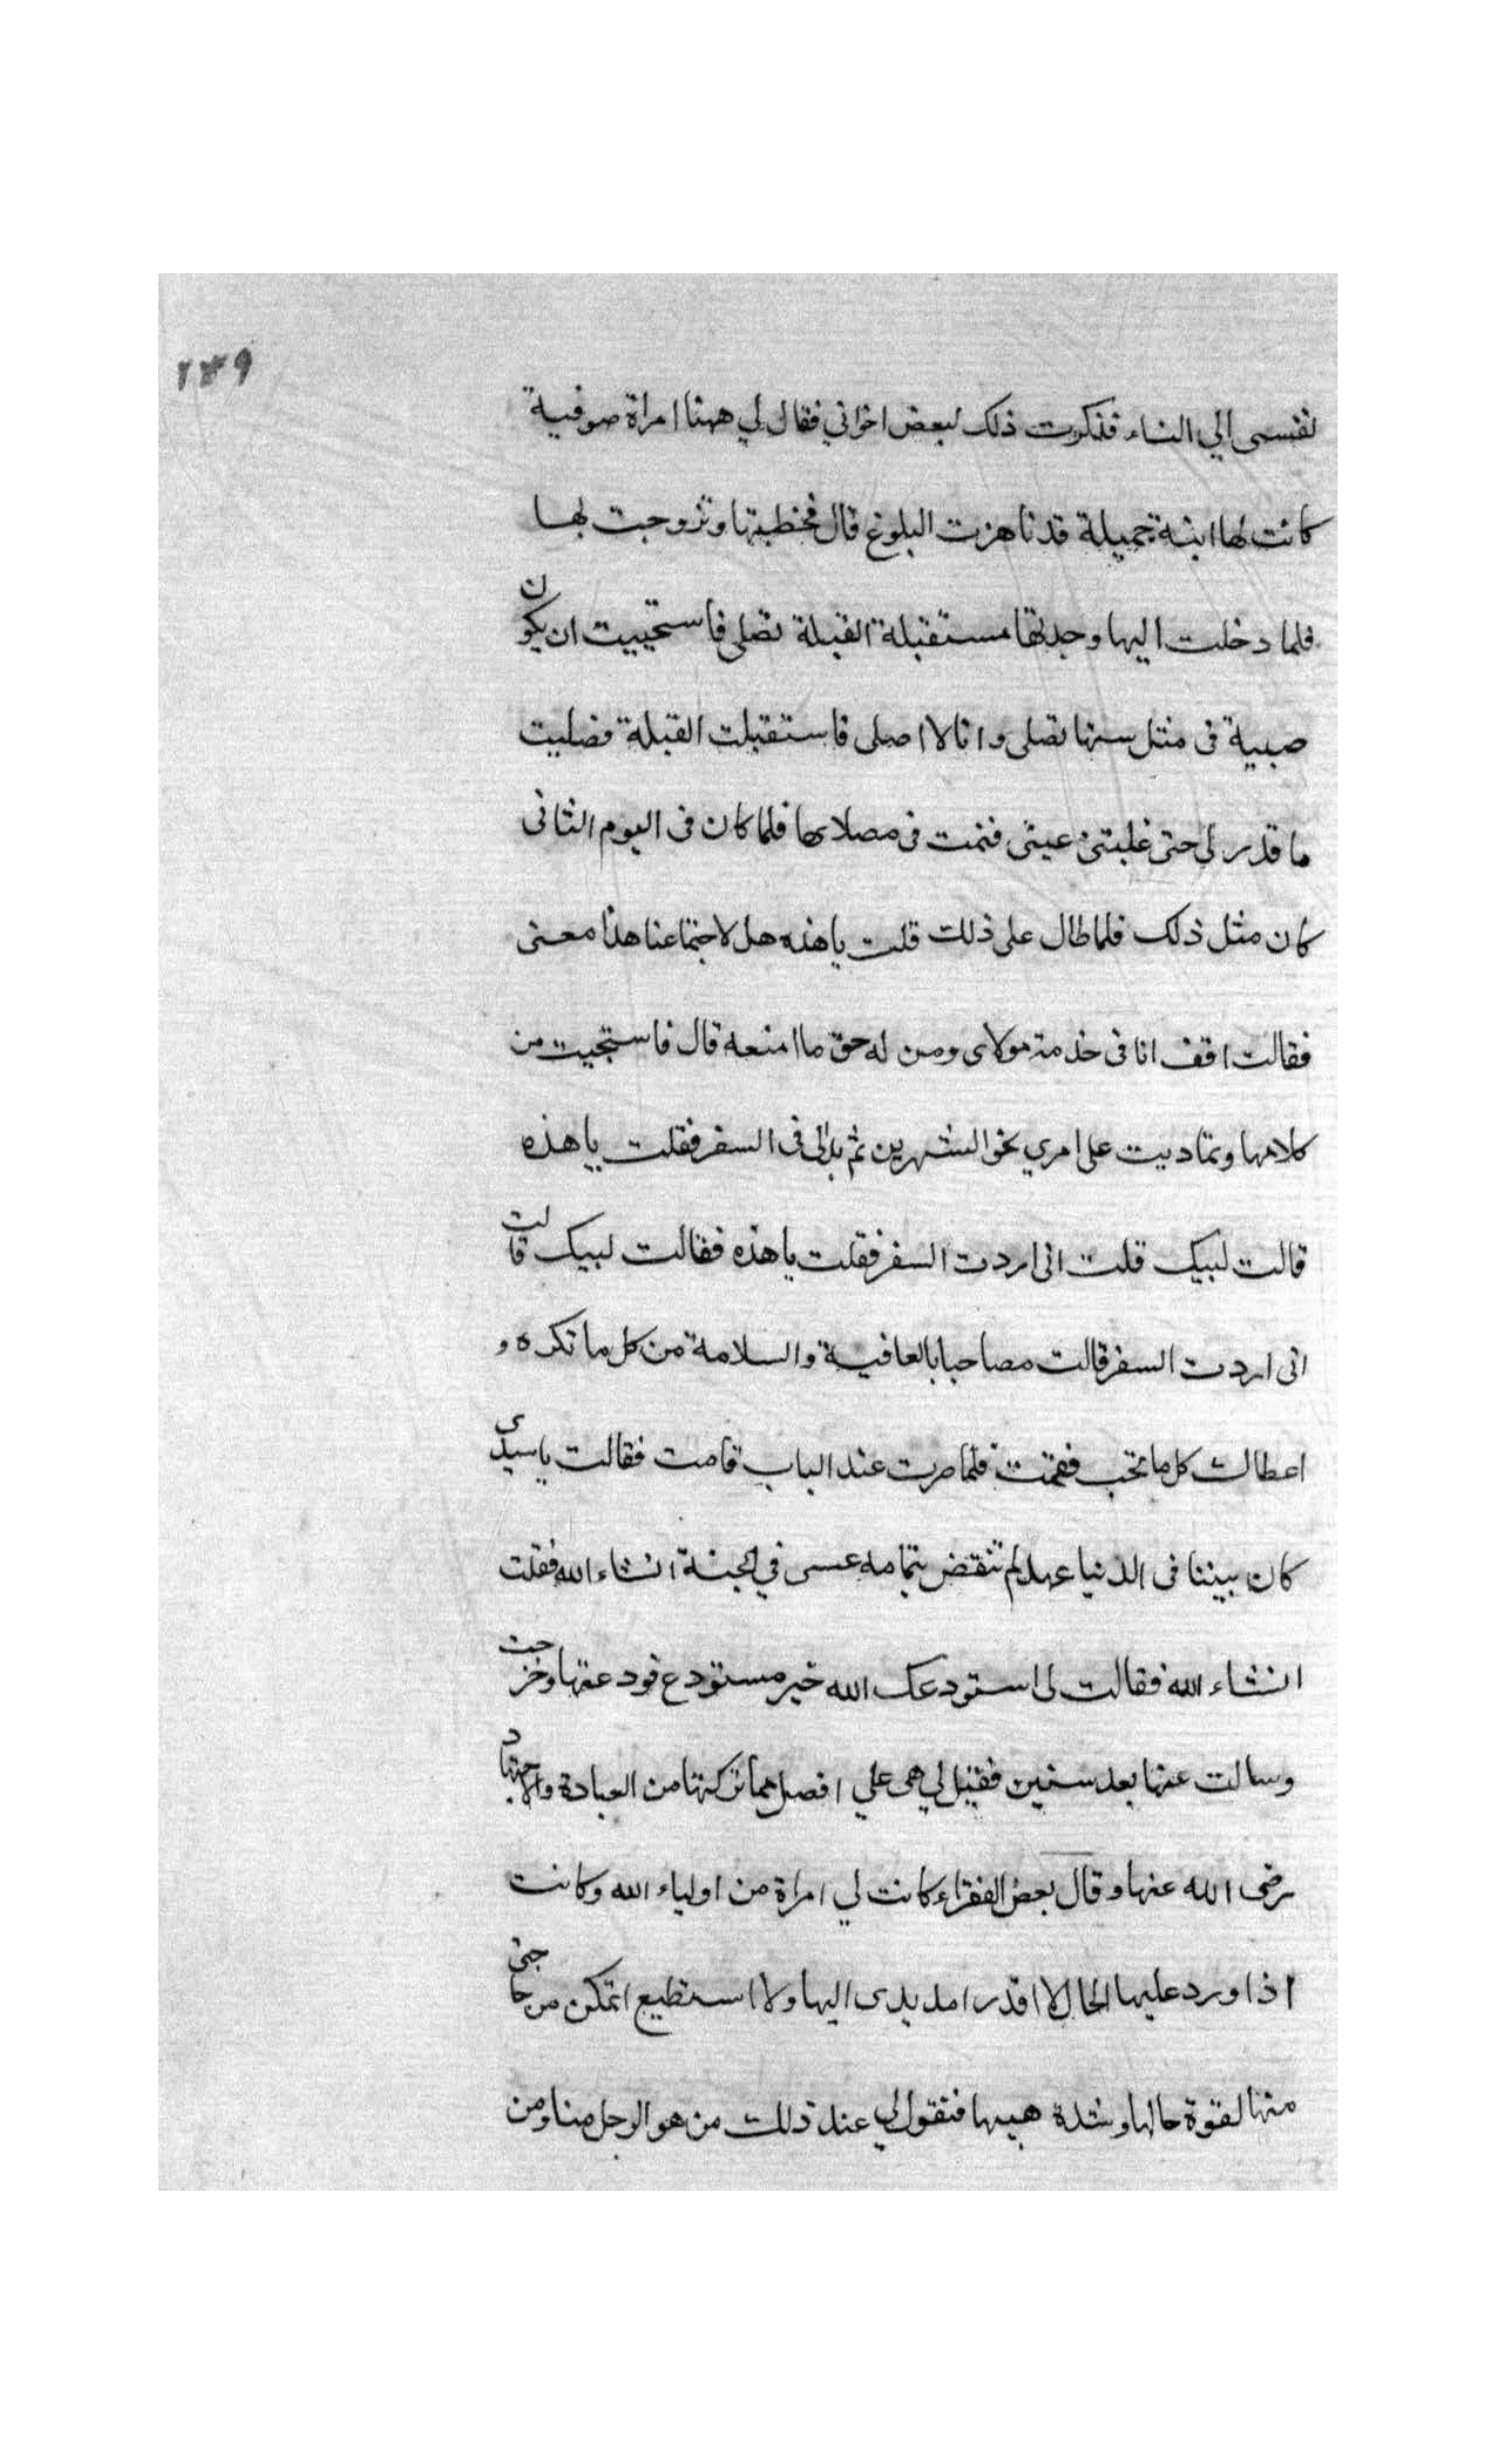 ١٣٩
نفسى الي النساء فذكرت ذلك لبعض اخواني فقال لي ههنا امراة صوفية
كانت لها ابنة جميلة قد ناهزت البلوغ قال فخطبتها وتزوجت بها
فلما دخلت اليها وجدتها مستقبلة القبلة تصلى فاستحييت ان يكون
صبية فى مثل سنها تصلى وانا لا اصلى فاستقبلت القبلة فصليت
ما قدر لي حتى غلبتنى عينى فنمت فى مصلاها فلما كان فى اليوم الثانى
كان مثل ذلك فلما طال على ذلك قلت يا هذه هل لاجتماعنا هذا معنى
فقالت اقف انا فى خدمة مولاى ومن له حق ما امنعه قال فاستحييت من
كلامها وتماديت على امري نحو الشهرين ثم بدا لى فى السفر فقلت يا هذه
قالت لبيك قلت انى اردت السفر فقلت يا هذه فقالت لبيك قالت
انى اردت السفر قالت مصاحبا بالعافية والسلامة من كل ما تكره و
اعطاك كل ما تحب فقمت فلما صرت عند الباب قامت فقالت يا سيدى
كان بيننا فى الدنيا عهد لم تنقض بتمامه عسى في الجنة انشاء الله فقلت
انشاء الله فقالت لى استودعك الله خير مستودع فودعتها وخرجت
وسالت عنها بعد سنين فقيل لي هى علي افضل مما تركتها من العبادة والاجتهاد
رضى الله عنها وقال بعض الفقراء كانت لي امراة من اولياء الله وكانت
اذا ورد عليها الحال لا اقدر امد يدى اليها ولا استطيع اتمكن من حاجتى
منها لقوة حالها وشدة هيبها فتقول لي عند ذلك من هو الرجل منا ومن